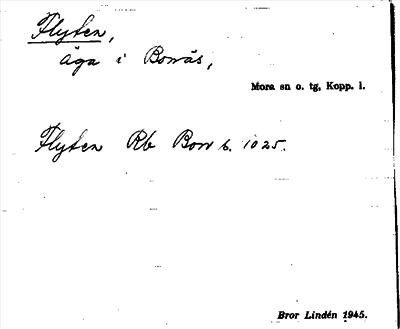 Flyten,
äga i Bonäs,
Mora sn o. tg, Kopp. l.
Flyten Rb Bon s. 1025.
Bror Lindén 1945.